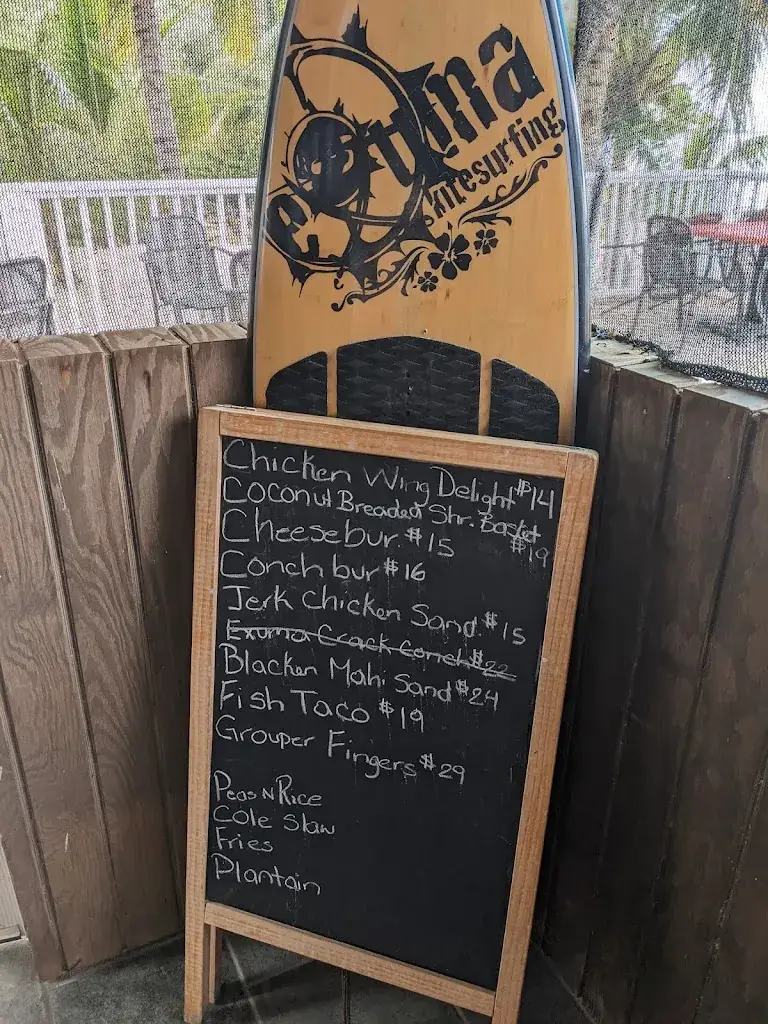 exuma
kitesurfing
Chicken Wing Delight $14
Coconut Breaded Shr. Basket
$19
Cheesebur. $15
Conch bur $16
Jerk Chicken Sand. $15
Exuma Crack Conch $22
Blacken Mahi Sand $24
Fish Taco $19
Grouper Fingers $29
Peas N Rice
Cole Slaw
Fries
Plantain